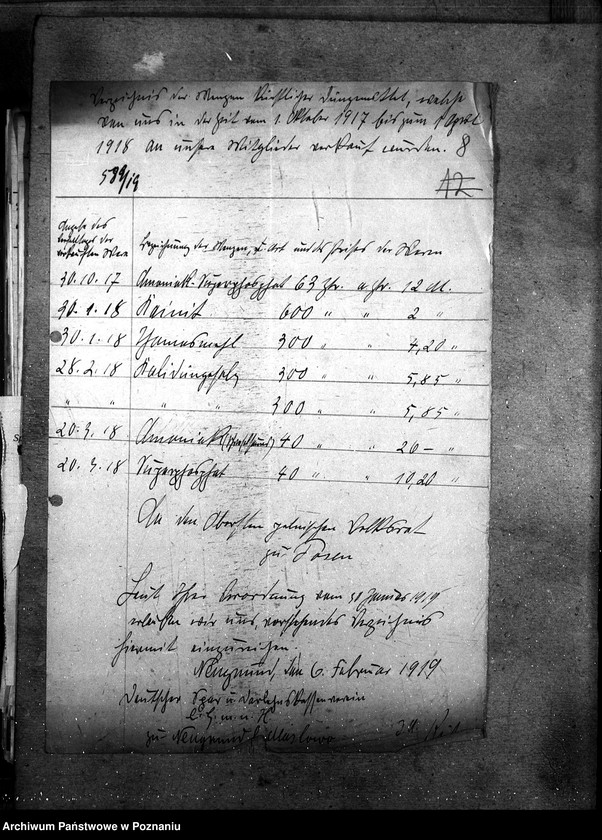 Verzeichnis der Mengen künstlicher Dungemittel, welche
von uns in der Zeit vom 1. Oktober 1917 bis zum 1 April
1918 an unsere Mitglieder verkauft wurden. 8
589/19 12
Angabe des
der
verkauften Ware
Bezeichnung der Mengen, Art und des Preises der Waren
30.10.17 Amoniak-Superphosphat 63 Ztr. a Ztr. 12 M.
30.1.18 Kainit 600 " " 2 "
30.1.18 Thomasmehl 300 " " 4,20 "
28.2.18 Kalidungesalz 300 " " 5,85 "
" " " " 300 " " 5,85 "
20.3.18 Amoniak 40 " " 26 – "
20.3.18 Superphosphat 40 " " 10,20 "
An den Obersten polnischen Volksrat
zu Posen
Laut Ihrer Verordnung vom Januar 1919
erlauben wir uns, vorstehendes Verzeichnis
hiermit einzureichen.
Neugrund, den 6. Februar 1919
Deutscher Spar u. Darlehnskassenverein
E. G. m. u. H.
zu Neugrund
Archiwum Państwowe w Poznaniu